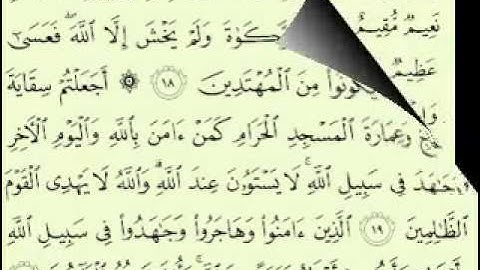 نَعِيمٌ مُّقِيمٌ ٱلزَّكَوٰةَ وَلَمْ يَخْشَ إِلَّا ٱللَّهَ ۖ فَعَسَىٰٓ
عَظِيمٌ يَكُونُوا۟ مِنَ ٱلْمُهْتَدِينَ ١٨ ۞ أَجَعَلْتُمْ سِقَايَةَ
وَعِمَارَةَ ٱلْمَسْجِدِ ٱلْحَرَامِ كَمَنْ ءَامَنَ بِٱللَّهِ وَٱلْيَوْمِ ٱلْـَٔاخِرِ
وَجَٰهَدَ فِى سَبِيلِ ٱللَّهِ ۚ لَا يَسْتَوُۥنَ عِندَ ٱللَّهِ ۗ وَٱللَّهُ لَا يَهْدِى ٱلْقَوْمَ
ٱلظَّٰلِمِينَ ١٩ ٱلَّذِينَ ءَامَنُوا۟ وَهَاجَرُوا۟ وَجَٰهَدُوا۟ فِى سَبِيلِ ٱللَّهِ